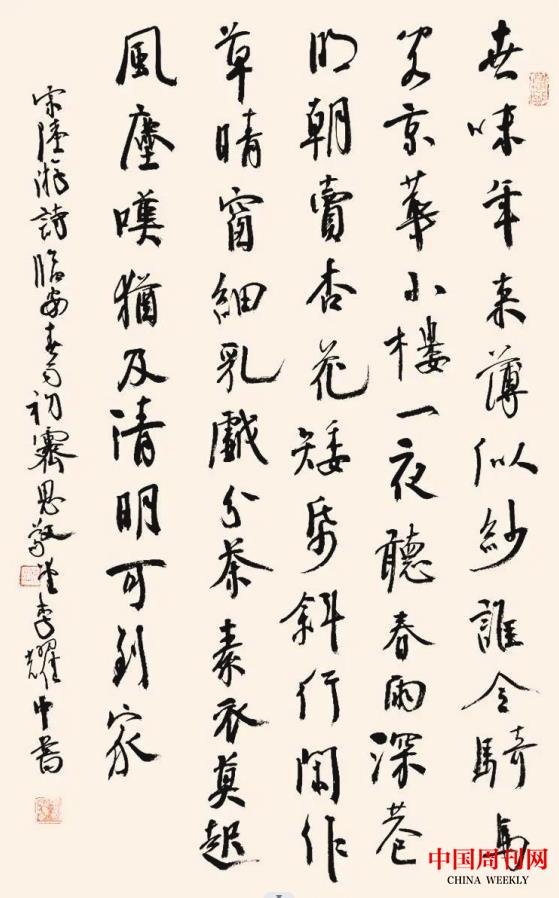 世味年来薄似紗誰令騎馬
客京華小樓一夜聽春雨深巷
明朝賣杏花矮帋斜行閑作
草晴窗細乳戲分茶素衣莫起
風塵嘆猶及清明可到家
宋陸游詩臨安春雨初霽思敬堂李耀中書
中国周刊网
CHINA WEEKLY